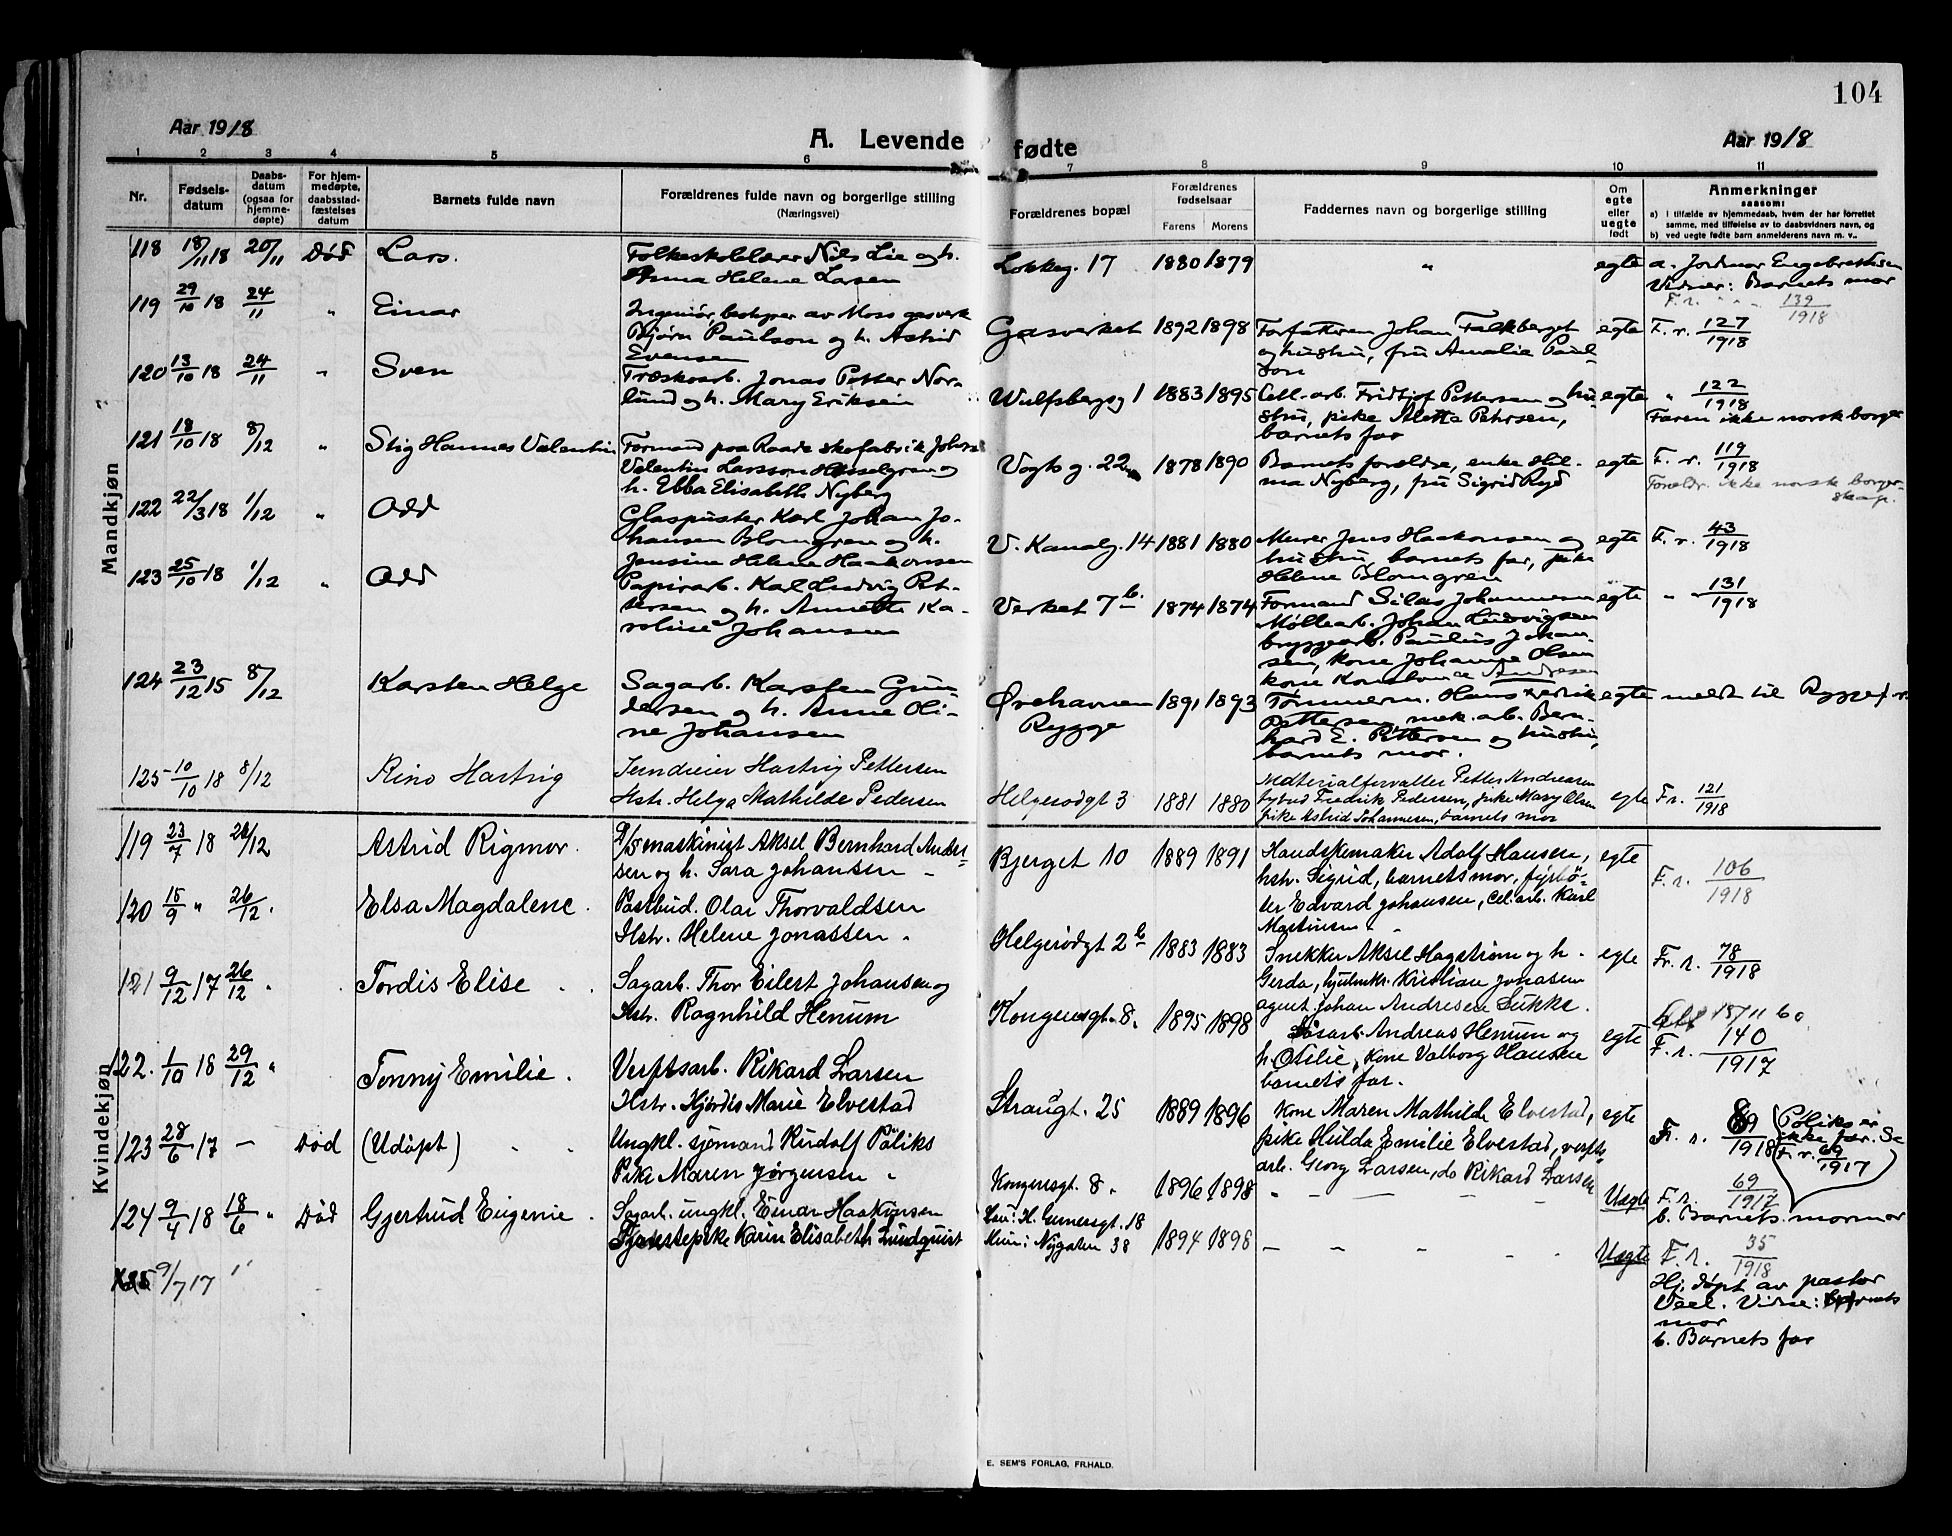 104
Aar 1918
A. Levende fødte
Aar 1918
1 2 3 4 5 6 7 8 9 10 11
Nr.
Fødsels-
datum
Daabs-
datum
(ogsaa for
hjemme-
døpte)
For hjem-
medøpte,
daabsstad-
fæstelses
datum
Barnets fulde navn
Forældrenes fulde navn og borgerlige stilling
(Næringsvei)
Forældrenes bopæl
Forældrenes
fødselsaar
Farens Morens
Faddernes navn og borgerlige stilling
Om
egte
eller
uegte
født
Anmerkninger
saasom:
a) i tilfælde av hjemmedaab, hvem der har forrettet
samme, med tilføielse av to daabsvidners navn, og
b) ved uegte fødte barn anmelderens navn m. v..
Mandkjøn
118 18/11 18 20/11 Død Lars.
Folkeskolelærer Nils Lie og h.
Anna Helene Larsen
Lokkeg. 17 1880 1879 " egte
a. Jordmor Engebrethsen
Vidner: Barnets mor
F. r. 139/1918
119 29/10 18 24/11 " Einar
Ingeniør, bestyrer av Moss gasverk
Bjørn Paulson og h. Astrid
Evensen
Gasverket 1892 1898
Forfatteren Johan Falkberget
og hustru, fru Amalie Paul-
son
egte F. r. 127/1918
120 13/10 18 24/11 " Sven
Træskoarb. Jonas Petter Nor-
lund og h. Mary Eriksen
Wulfsbergsg 1 1883 1895
Cell. arb. Fridtjof Pettersen og hu-
stru, pike Alette Pettersen,
barnets far
egte " 122/1918
Faren ikke norsk borger
121 18/10 18 8/12 " Stig Hannes Valentin
Formand paa Raade skofabrik Johan
Valentin Larsson Hesselgren og
h. Ebba Elisabeth Nyberg
Vogts g. 22 1878 1890
Barnets forældre, enke Hil-
ma Nyberg, fru Sigrid Ryd
egte F. r. 119/1918
Foreldr. ikke norsk borger-
skap.
122 22/3 18 1/12 " Odd
Glaspuster Karl Johan Jo-
hansen Blomgren og h.
Jensine Helene Haakonsen
V. Kanalg. 14 1881 1880
Murer Jens Haakonsen og
hustru, barnets far, pike
Helene Blomgren
egte F. r. 43/1918
123 25/10 18 1/12 " Odd
Papirarb. Karl Ludvig Pet-
tersen og h. Annette Ka-
roline Johansen
Verket 7 b. 1874 1874
Formand Silas Johannesen
Møllearb. Johan Ludvigsen
bryggearb. Paulius Johan-
sen, kone Johanne Olsen
kone Konstance Andresen
egte " 131/1918
124 23/12 15 8/12 Karsten Helge
Sagarb. Karsten Gun-
dersen og h. Anne Oli-
ne Johansen
Ørehavnen
Rygge
1891 1893
Tømmerm. Hans Fredrik
Pettersen, mek. arb. Bern-
hard E. Pettersen og hustru,
barnets mor.
egte meldt til Rygge f. r.
125 10/10 18 8/12 Rino Hartvig
Jerndreier Hartvig Pettersen
Hstr. Helga Mathilde Pedersen
Helgerødgt 3 1881 1880
Materialforvalter Petter Andresen
bybud Fredrik Pedersen, pike Mary Olsen
pike Astrid Johannesen, barnets mor
egte Fr. 121/1918
Kvindekjøn
119 23/7 18 26/12 Astrid Rigmor.
D/S maskinist Aksel Bernhard Ander-
sen og h. Sara Johansen
Bjerget 10 1889 1891
Handskemaker Adolf Hansen,
hstr. Sigrid, barnets mor, fyrbø-
ter Edvard Johansen, Cel. arb. Karl
Martinsen
egte F. r. 106/1918
120 15/9 " 26/12 Elsa Magdalene.
Postbud. Olaf Thorvaldsen
Hstr. Helene Jonassen
Helgerødgt 2 b 1883 1883
Snekker Aksel Hagstrøm og h.
Gerda, hjulmkr. Kristian Jonasen
agent. Johan Andresen Sukke.
egte Fr. r. 78/1918
121 9/12 17 26/12 Tordis Elise
Sagarb. Thor Eilert Johansen og
Hstr. Ragnhild Henum
Kongensgt. 8. 1895 1898
Løsarb. Andreas Henum og
h. Otilie, Kone Valborg Hansen
barnets far.
egte 18/11 60
F. r. 140/1917
122. 1/10 18 29/12 " Tonny Emilie.
Verftsarb. Rikard Larsen
Hstr. Hjørdis Marie Elvestad
Strandgt. 25 1889 1896
Kone Maren Mathilde Elvestad,
pike Hulda Emilie Elvestad, verfts-
arb. Georg Larsen, do Rikard Larsen
egte Fr. r. 89/1918
(Poliks er
ikke far. Se
F. r. 69/1917)
123 28/6 17 — Død (Udøpt)
Ungkl. sjømand Rudolf Poliks
Pike Maren Jørgensen
Kongensgt. 8. 1896 1898 Uegte
F. r. 69/1917
b. Barnets mormor
124 9/4 18 18/6 " Død Gjertrud Eugenie
Sagarb. ungkl. Einar Haakonsen
Tjenestepike Karin Elisabeth Lundquist
Han: H. Gernersgt. 18
Hun: Nygaten 38
1894 1898 Uegte
F. r. 35/1918
Hj. døpt av pastor
Veel. Vidne: Barnets
mor
b. Barnets far
9/7 17
E. SEM'S FORLAG, FR.HALD.